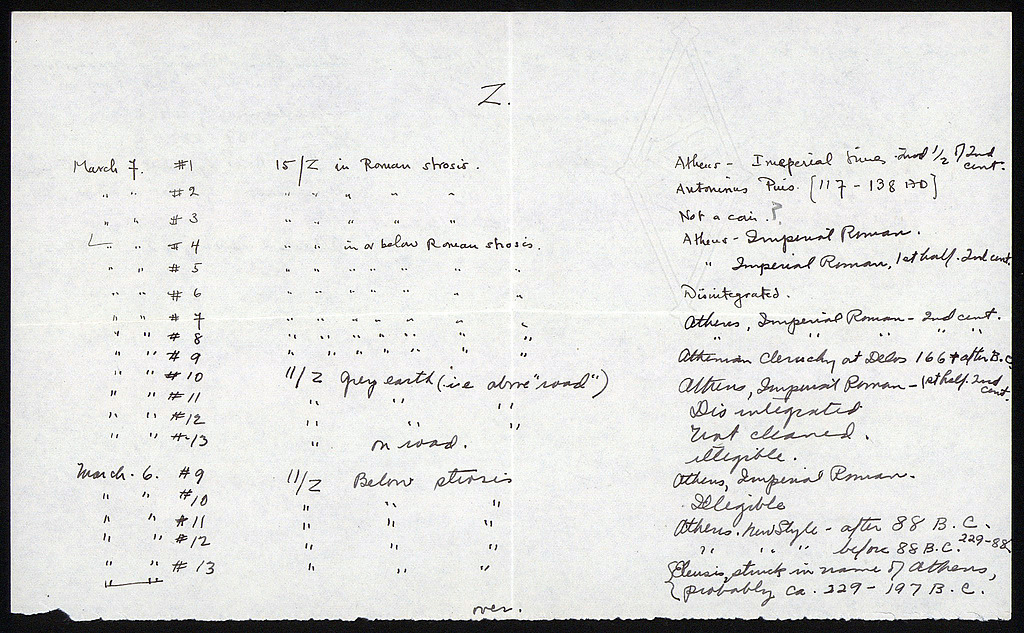 Z.
March 7. #1 15/Z in Roman strosis. Athens - Imperial times - 2nd 1/2 of 2nd cent.
" " #2 " " " " " Antoninus Pius. [117 - 138 AD]
" " #3 " " " " " Not a coin.?
" #4 " " in or below Roman strosis. Athens - Imperial Roman.
" " #5 " " " " " " " Imperial Roman, 1st half. 2nd cent.
" " #6 " " " " " " Disintegrated.
" " #7 " " " " " " Athens, Imperial Roman - 2nd cent.
" " #8 " " " " " " " " " "
" " #9 " " " " " " Athenian cleruchy at Delos 166 + after B.C.
" " #10 11/Z Grey earth (i.e above "road") Athens, Imperial Roman - 1st half. 2nd cent.
" " #11 " " " Disintegrated
" " #12 " " " Not cleaned.
" " #13 " on road. illegible.
March. 6. #9 11/Z Below strosis Athens, Imperial Roman.
" " #10 " " " Illegible
" " #11 " " " Athens. New Style - after 88 B.C.
" " #12 " " " " " " before 88 B.C. 229-88
" " #13 " " " {Eleusis, struck in name of Athens,
" " probably ca. 229 - 197 B.C.
over.